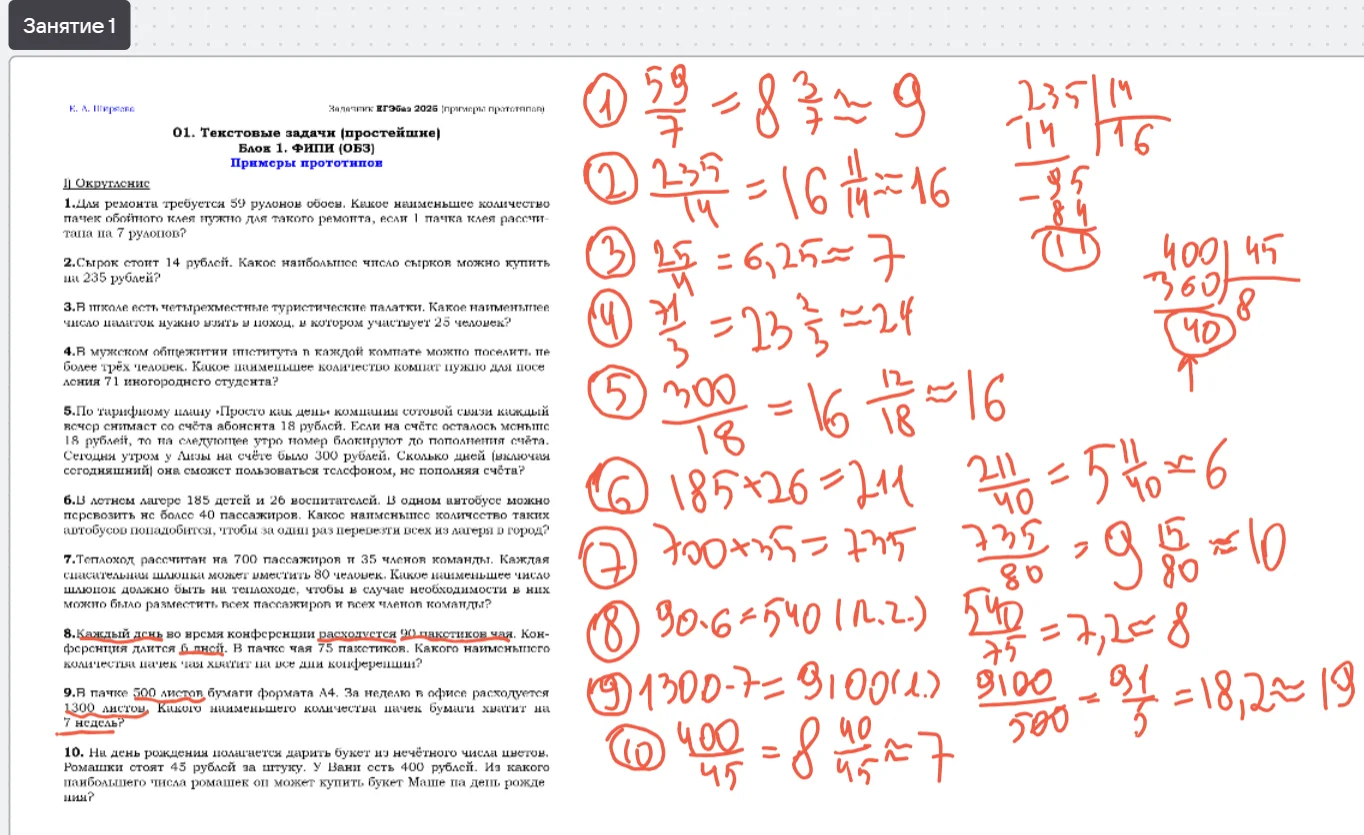 Занятие 1
Е. А. Ширяева
Задачник ЕГЭбаз 2026 (примеры прототипов)
01. Текстовые задачи (простейшие)
Блок 1. ФИПИ (ОБЗ)
Примеры прототипов
I) Округление
1.Для ремонта требуется 59 рулонов обоев. Какое наименьшее количество
пачек обойного клея нужно для такого ремонта, если 1 пачка клея рассчи-
тана на 7 рулонов?
2.Сырок стоит 14 рублей. Какое наибольшее число сырков можно купить
на 235 рублей?
3.В школе есть четырехместные туристические палатки. Какое наименьшее
число палаток нужно взять в поход, в котором участвует 25 человек?
4.В мужском общежитии института в каждой комнате можно поселить не
более трёх человек. Какое наименьшее количество комнат нужно для посе
ления 71 иногороднего студента?
5.По тарифному плану «Просто как день» компания сотовой связи каждый
вечер снимает со счёта абонента 18 рублей. Если на счёте осталось меньше
18 рублей, то на следующее утро номер блокируют до пополнения счёта.
Сегодня утром у Лизы на счёте было 300 рублей. Сколько дней (включая
сегодняшний) она сможет пользоваться телефоном, не пополняя счёта?
6.В летнем лагере 185 детей и 26 воспитателей. В одном автобусе можно
перевозить не более 40 пассажиров. Какое наименьшее количество таких
автобусов понадобится, чтобы за один раз перевезти всех из лагеря в город?
7.Теплоход рассчитан на 700 пассажиров и 35 членов команды. Каждая
спасательная шлюпка может вместить 80 человек. Какое наименьшее число
шлюпок должно быть на теплоходе, чтобы в случае необходимости в них
можно было разместить всех пассажиров и всех членов команды?
8.Каждый день во время конференции расходуется 90 пакетиков чая. Кон-
ференция длится 6 дней. В пачке чая 75 пакетиков. Какого наименьшего
количества пачек чая хватит на все дни конференции?
9.В пачке 500 листов бумаги формата А4. За неделю в офисе расходуется
1300 листов. Какого наименьшего количества пачек бумаги хватит на
7 недель?
10. На день рождения полагается дарить букет из нечётного числа цветов.
Ромашки стоят 45 рублей за штуку. У Вани есть 400 рублей. Из какого
наибольшего числа ромашек он может купить букет Маше на день рожде
ния?
1 59/7 = 8 3/7 ≈ 9
2 235/14 = 16 11/14 ≈ 16
3 25/4 = 6,25 ≈ 7
4 71/3 = 23 2/3 ≈ 24
5 300/18 = 16 12/18 ≈ 16
6 185+26=211 211/40 = 5 11/40 ≈ 6
7 700+35=735 735/80 = 9 15/80 ≈ 10
8 90·6=540 (п.г.) 540/75 = 7,2 ≈ 8
9 1300·7=9100(л.) 9100/500 = 91/5 = 18,2 ≈ 19
10 400/45 = 8 40/45 ≈ 7
235 14
- 14 16
95
- 84
11
400 45
- 360 8
40